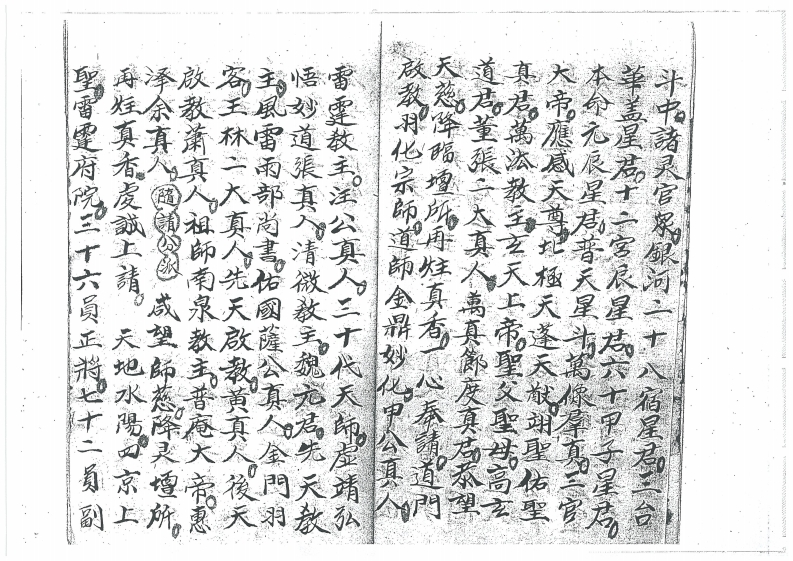 斗中諸灵官眾銀河二十八宿星君三台
華盖星君十二宮辰星君六十甲子星君
本命元辰星君普天星斗萬像羣真三官
大帝應感天尊北極天蓬天猷翊聖佑聖
真君萬法教主玄天上帝聖父聖母高玄
道君董張二大真人萬真節度真君恭望
天慈降臨壇所再炷真香一心奉請道門
啟教羽化宗師道師金鼎妙化申公真人
雷霆教主汪公真人三十代天師虛靖弘
悟妙道張真人清微教主魏元君先天教
主風雷雨部尚書佑國薩公真人金門羽
客王林二大真人先天啟教黃真人後天
啟教蕭真人祖師南泉教主普庵大帝惠
澤余真人隨請公派咸望師慈降灵壇所
再炷真香虔誠上請 天地水陽四京上
聖雷霆府院三十六員正將七十二員副